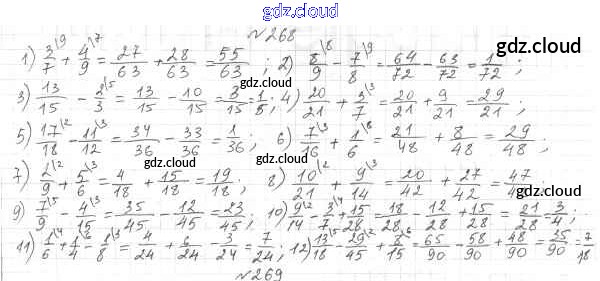 gdz.cloud
№268
gdz.cloud
1) 3/7 \9 + 4/9 \7 = 27/63 + 28/63 = 55/63 ; 2) 8/9 \8 - 7/8 \9 = 64/72 - 63/72 = 1/72 ;
gdz.cloud
3) 13/15 - 2/3 \5 = 13/15 - 10/15 = 3/15 = 1/5 ; 4) 20/21 + 3/7 \3 = 20/21 + 9/21 = 29/21 ;
gdz.cloud
5) 17/18 \2 - 11/12 \3 = 34/36 - 33/36 = 1/36 ; 6) 7/16 \3 + 1/6 \8 = 21/48 + 8/48 = 29/48 ;
gdz.cloud
7) 2/9 \2 + 5/6 \3 = 4/18 + 15/18 = 19/18 ; 8) 10/21 \2 + 9/14 \3 = 20/42 + 27/42 = 47/42 ;
gdz.cloud
9) 7/9 \5 - 4/15 \3 = 35/45 - 12/45 = 23/45 ; 10) 9/14 \2 - 3/7 \4 + 15/28 = 18/28 - 12/28 + 15/28 = 21/28 = 3/4 ;
gdz.cloud
11) 1/6 \4 + 1/4 \6 - 1/8 \3 = 4/24 + 6/24 - 3/24 = 7/24 ; 12) 13/18 \5 - 29/45 \2 + 8/15 \6 = 65/90 - 58/90 + 48/90 = 35/90 = 7/18
№269